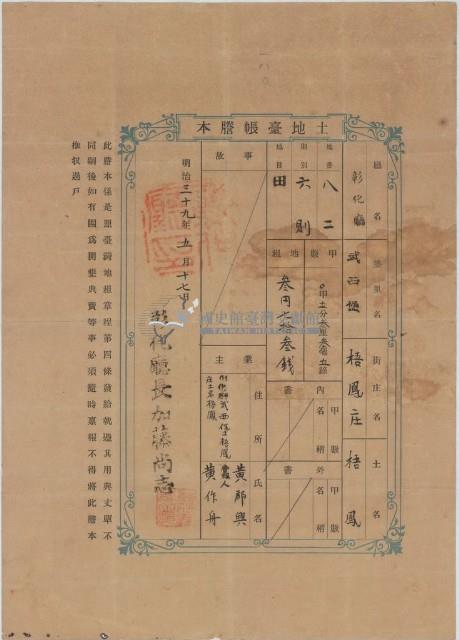 土地臺帳謄本
廳名 彰化廳
堡里名 武西堡
街庄名 梧鳳庄
土名 梧鳳
地番 八二
則別 六則
地目 田
甲數
地租 叁円七拾叁錢
內書 甲數 名稱
外書 甲數 名稱
事故
業主
住所
氏名 黃那興
黃作舟
明治三十九年五月十七日
彰化廳長加藤尚志
國史館臺灣文獻館
此謄本係是照臺灣地租章程第四條發給就過其用與丈單不
同嗣後如有關為開墾典賣等事必須隨時稟報不得將此謄本
推收過戶